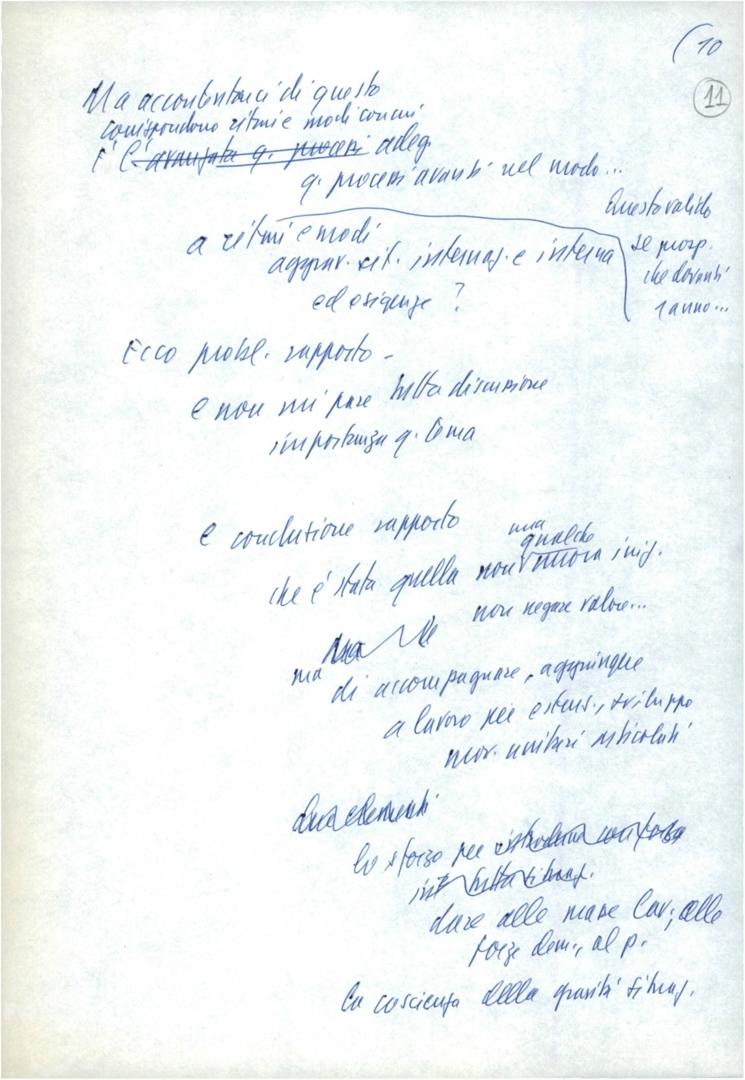 (10
11
Ma accontentarci di questo
corrispondono ritmi e modi con cui
È l'avanzata q. processi adeg
q. processi avanti nel modo...
Questo valido
se prosp.
che davanti
1 anno...
a ritmi e modi
aggrav. sit. internaz. e interna
ed esigenze ?
Ecco probl. rapporto -
e non mi pare tutta discussione
importanza q. tema
e conclusione rapporto
ma
qualche
che è stata quella non nuova iniz.
non negare valore...
ma
di accompagnare, aggiunge
a lavoro per estens., sviluppo
mov. unitari articolati
due elementi
lo sforzo per
tutta situaz.
dare alle masse lav., alle
forze dem., al p.
la coscienza della gravità situaz.